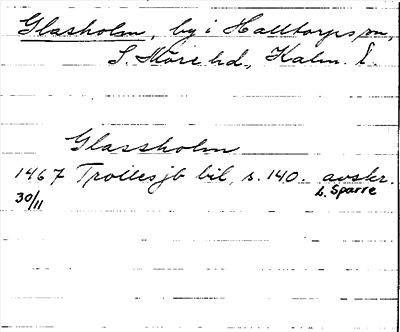 Glasholm, by i Halltorps sn,
S. Möre hd, Kalm. l.
Glassholm
1467 Trollesjb bil, s. 140. avskr.
30/11 L. Sparre